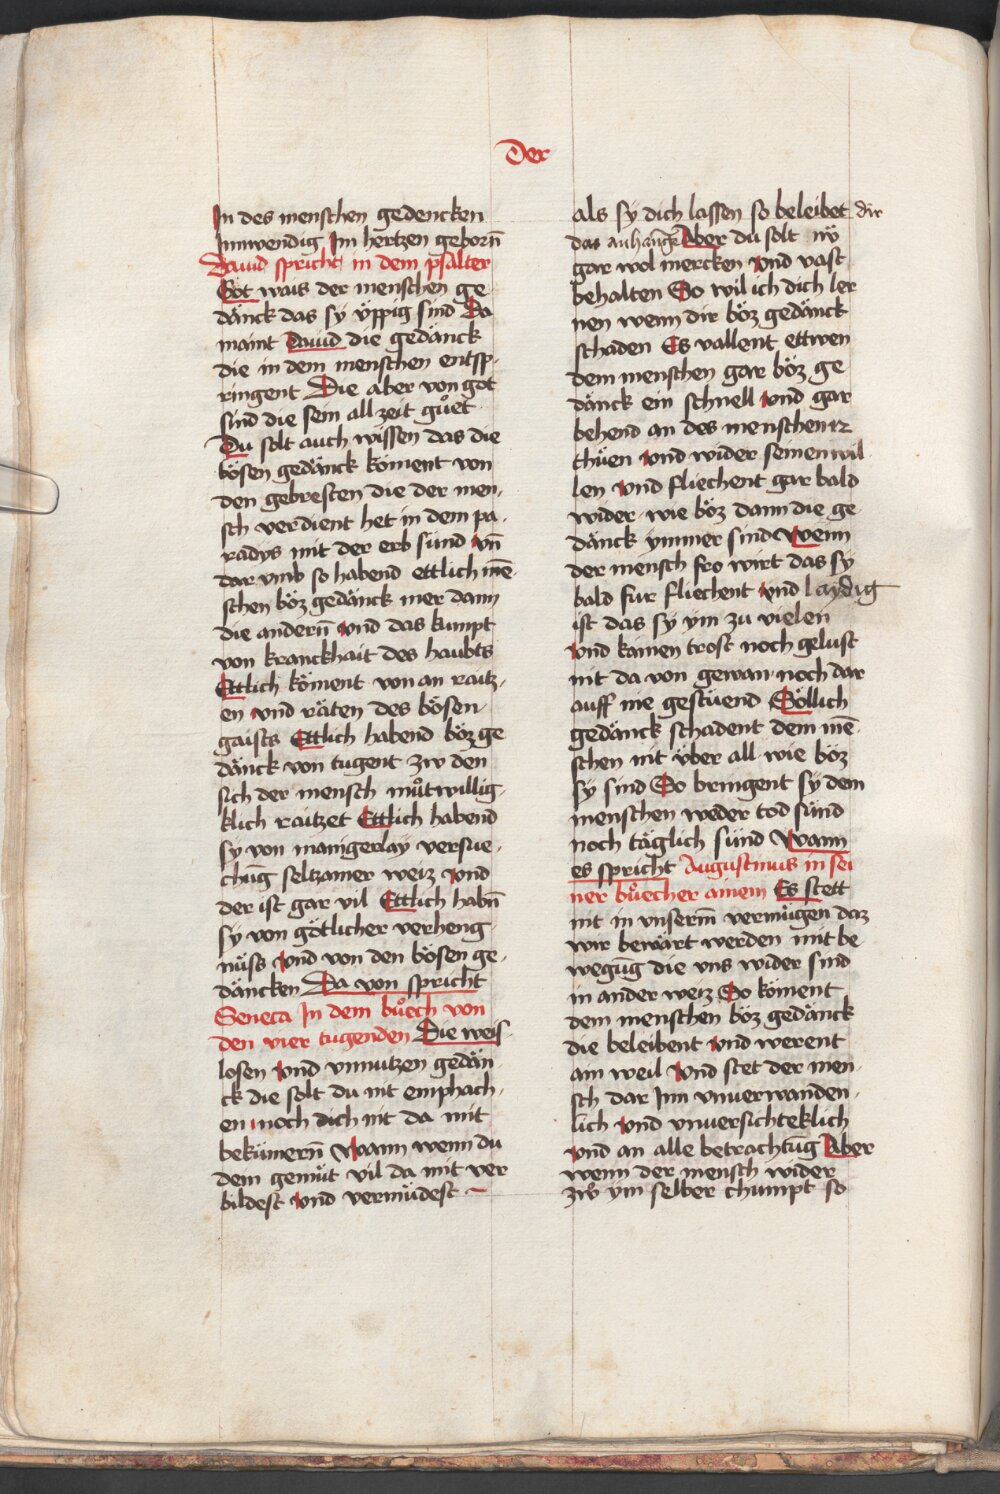 Der
In des menschen gedencken
Innwendig Im hertzen geborn̄
Dauid spricht in dem psalter
Got wais der menschen ge
dänck das sy üppig sind Da
maint Dauid die gedänck
die in dem menschen entsp-
ringent Die aber von got
sind die sein all zeit guͦet
Du solt auch wissen das die
bösen gedänck köment von
den gebresten die der men-
sch verdient het in dem pa-
radys mit der erb sünd vn̄
dar vmb so habend ettlich mē-
schen böz gedänck mer dann
die andern̄ vnd das kumpt
von kranckhait des haubts
Ettlich köment von an raitz-
en vnd räten des bösen
gaists Ettlich habend böz ge
dänck von tugent zw den
sich der mensch muͦtwillig-
klich raitzet Ettlich habend
sy von manigerlay versue-
chūg seltzamer weiz vnd
der ist gar vil Ettlich habn̄
sy von götlicher verheng
nüss vnd von den bösen ge-
däncken Da von spricht
Seneca In dem buͦech von
den vier tugenden Die weis-
losen vnd vnnutzen gedän-
ck die solt du nit emphach-
en noch dich nit da mit
bekümern̄ Wann wenn du
dem gemüt vil da mit ver
bildest vnd vermüdest
als sy dich lassen so beleibet dir
das anhangk Aber du solt nv̈
gar wol mercken vnd vast
behalten So wil ich dich ler
nen wenn dir böz gedänck
schaden Es vallent ettwen
dem menschen gar böz ge
dänck ein schnell vnd gar
behend an des menschen zz
thüen vnd wider seinen wil
len vnd fliechent gar bald
wider wie böz dann die ge
dänck ymmer sind Wenn
der mensch fro wirt das sy
bald für fliechent vnd laydig
ist das sy ym zu vielen
vnd kainen trost noch gelust
nit da von gewan noch dar
auff nie gestüend Söllich
gedänck schadent dem mē-
schen nit über all wie böz
sy sind So bringent sy dem
menschen weder tod sünd
noch täglich sünd Wann
es spricht Augustinus in sei
ner buͦecher ainem Es stett
nit in vnserm̄ vermügen daz
wir bewärt werden mit be
wegūg die vns wider sind
in ander weiz So köment
dem menschen böz gedänck
die beleibent vnd werent
ain weil vnd stet der men-
sch dar Inn vnuerwanden-
lich vnd vnuersichteklich
vnd an alle betrachtūg Aber
wenn der mensch wider
zwͦ ym selber chumpt so